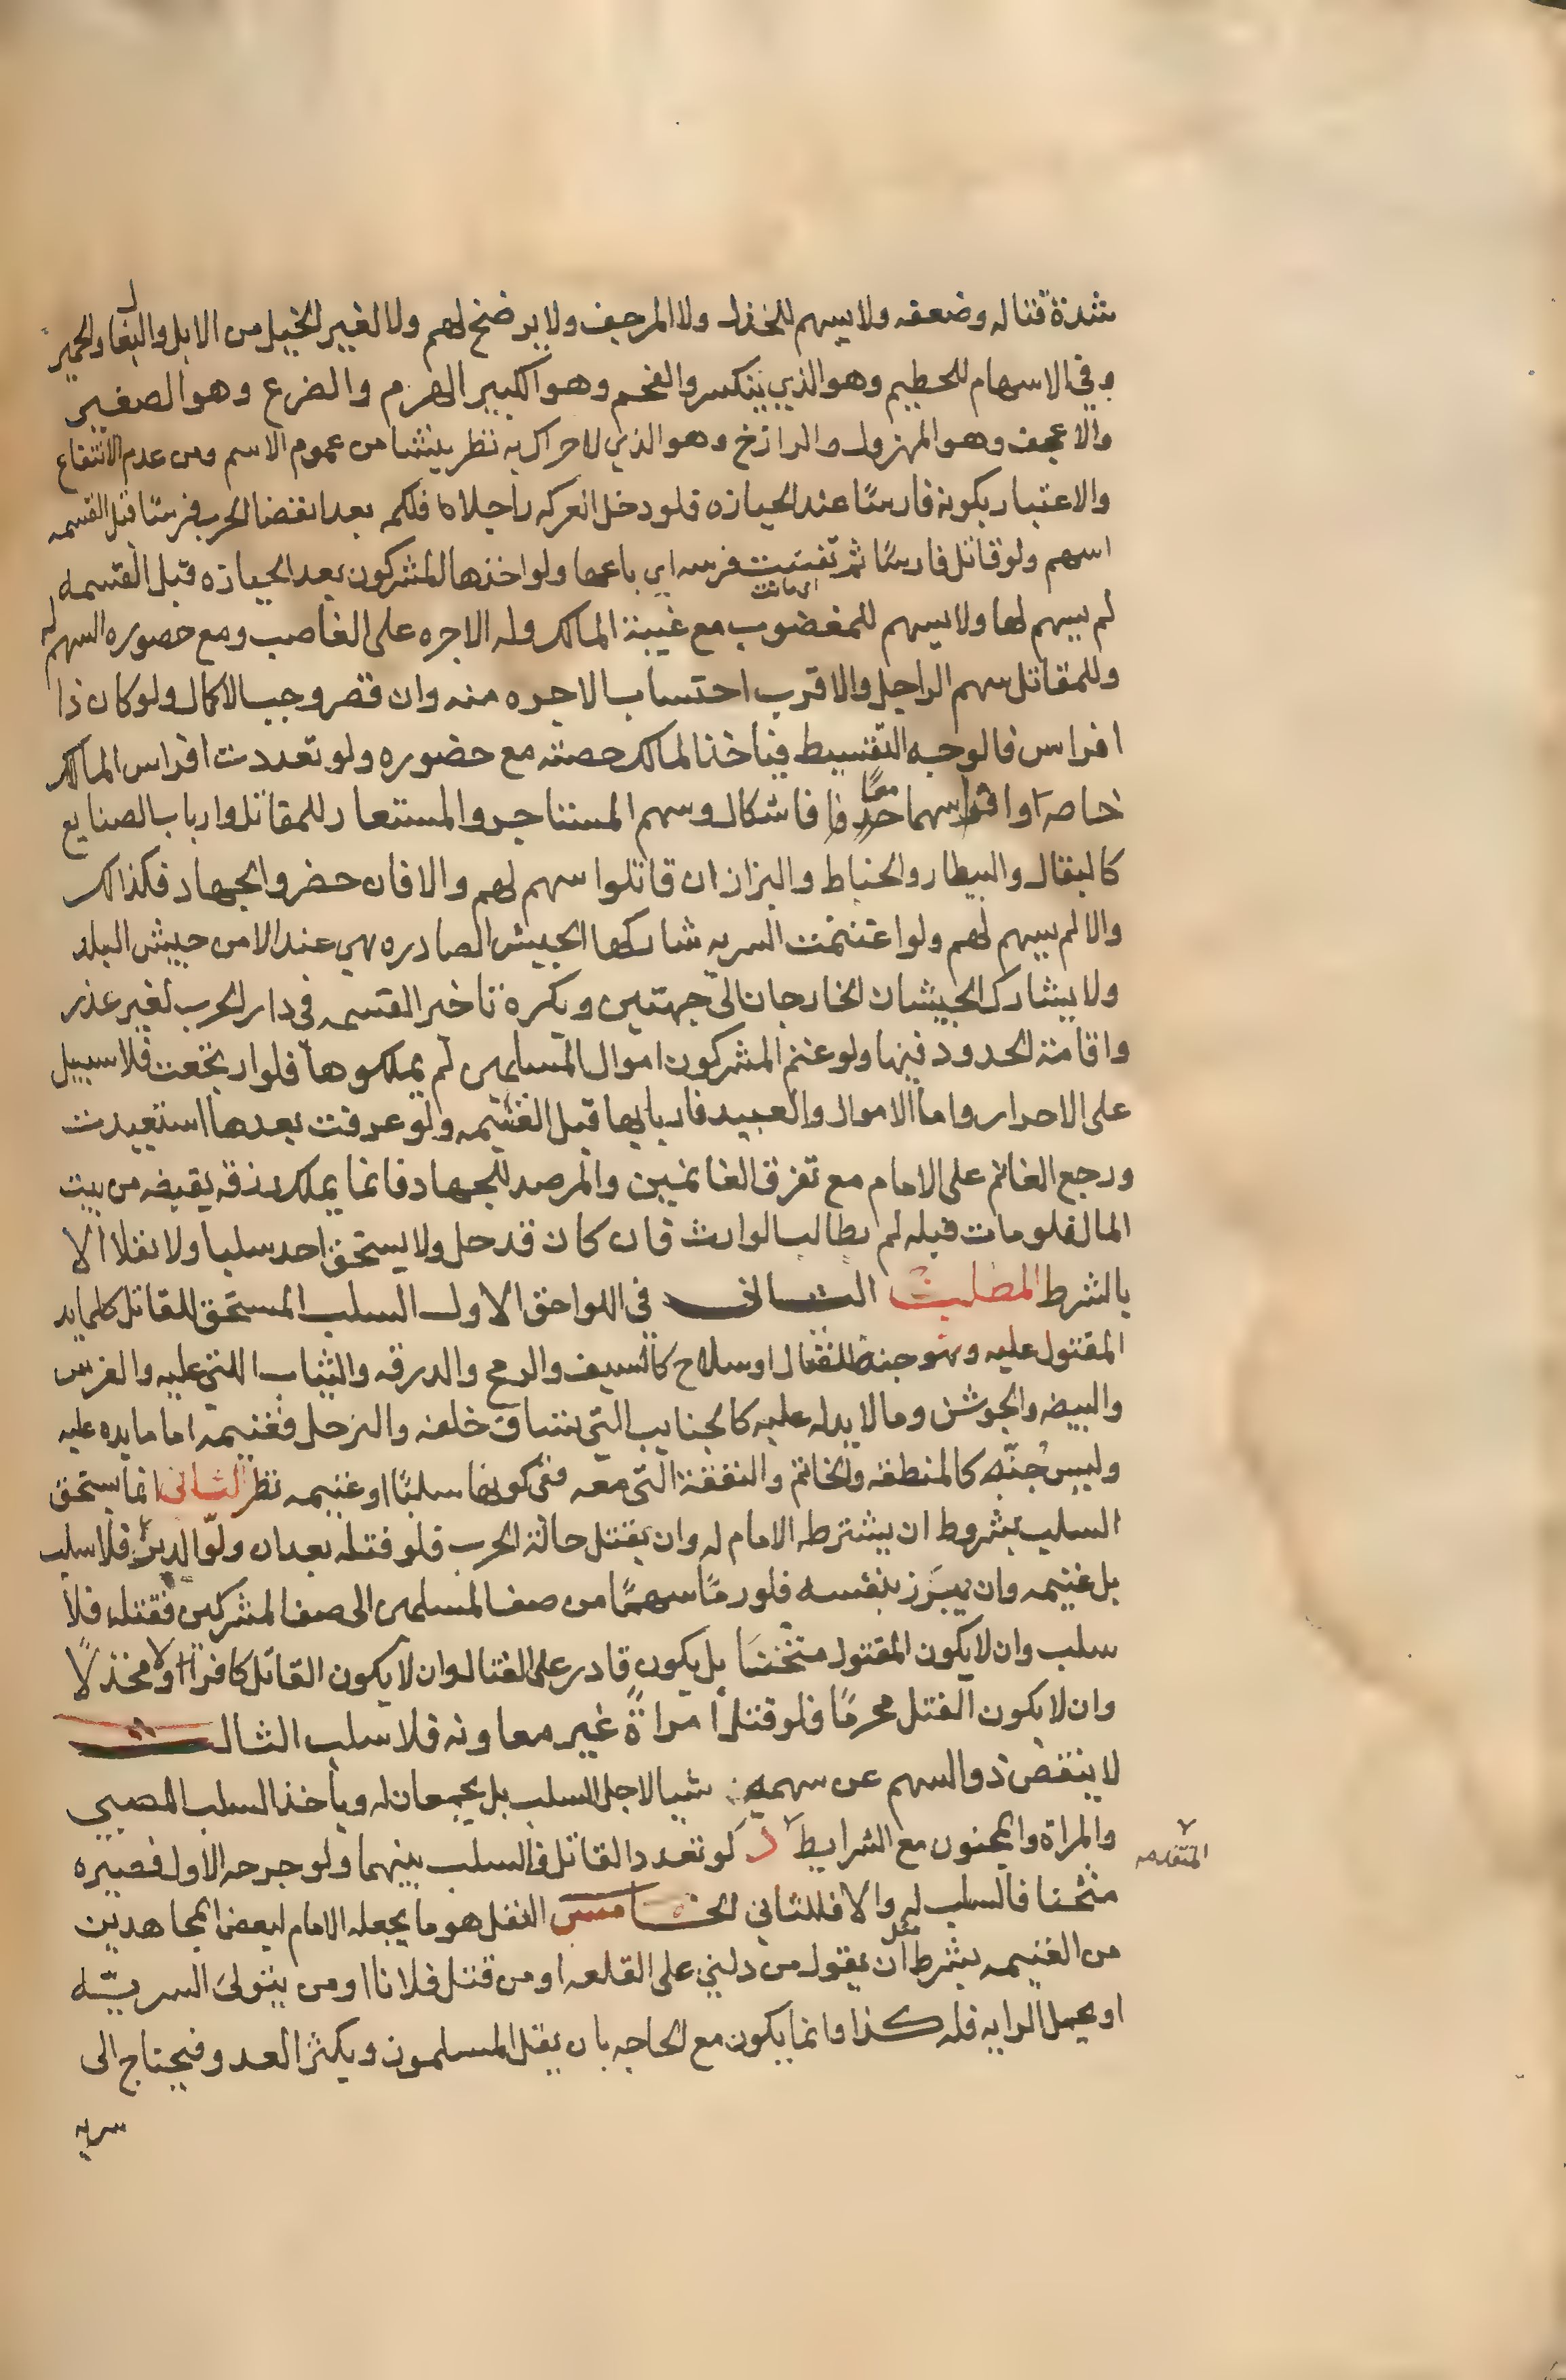 شدة قتاله وضعفه ولا يسهم للمخذل ولا المرجف ولا يرضخ لهم ولا لغير الخيل من الابل والبغال والحمير
وفي الاسهام للحطيم وهو الذي ينكسر والقحم وهو الكبير الهرم والضرع وهو الصغير
والاعجف وهو المهزول والرازخ وهو الذي لا حراك به نظر ينشا من عموم الاسم ومن عدم الانتفاع
والاعتبار بكونه فارسًا عند الحيازه فلو دخل المعركه راجلا فملكه بعد انقضا الحرب فرسًا قبل القسمه
اسهم ولو قاتل فارسًا ثم تفسمت فرسه اي باعها ولو اخذها المشركون بعد الحيازه قبل القسمه
اي ماتت
لم يسهم لها ولا يسهم للمغضوب مع غيبة المالك وله الاجره على الغاصب ومع حضوره السهم له
وللمقاتل سهم الراجل والاقرب احتساب الاجره منه وان قصر وجب الاكمال ولو كان ذا
افراس فالوجه التقسيط فياخذ المالك حصته مع حضوره ولو تعددت افراس المالك
خاصة او افراسهما معًا فاشكال وسهم المستاجر والمستعار للمقاتل وارباب الصنايع
كالبقال والبيطار والخياط والبزاز ان قاتلوا سهم لهم والا فان حضروا الجهاد فكذلك
والا لم يسهم لهم ولو اغتنمت السريه شاركها الجيش الصادره هي عنه الامن جيش البلد
ولا يشارك الجيشان الخارجان الى جهتين ويكره تاخير القسمه في دار الحرب لغير عذر
واقامة الحدود فيها ولو غنم المشركون اموال المسلمين لم يملكوها فلو ارتجعت فلا سبيل
على الاحرار واما الاموال والعبيد فاربابها قبل القسمه ولو عرفت بعدها استعيدت
ورجع الغانم على الامام مع تفرق الغانمين والمرصد للجهاد فانما يملك رزقه بقبضه من بيت
المال فلو مات قبله لم يطالب الوارث فان كان قد حل ولا يستحق احد سلبا ولا نفلا الا
بالشرط المطلب الثاني في اللواحق الاول السلب المستحق للقاتل كلما يد
المقتول عليه وهو جنة للقتال او سلاح كالسيف والرمح والدرقه والثياب اللتي عليه والفرس
والبيضه والجوشن وما لا يد له عليه كالجنايب التي تساق خلفه والرحل فغنيمه اما ما يده عليه
وليس جُنّه كالمنطقه والخاتم والنفقة التي معه ففي كونها سلبًا او غنيمه نظر الثاني انما يستحق
السلب بشروط ان يشترطه الامام له وان يقتل حالة الحرب فلو قتله بعد ان ولّوا الدبر فلا سلب
بل غنيمه وان يبرَز بنفسه فلو رمًا سهمًا من صف المسلمين الى صف المشركين فقتله فلا
سلب وان لا يكون المقتول مثخنًا بل يكون قادر على القتال وان لا يكون القاتل كافرًا ولا مخذلًا
وان لا يكون القتل محرمًا فلو قتل امراةً غير معاونه فلا سلب الثالث
لا ينقص ذو السهم عن سهمه شيا لاجل السلب بل يجمعان له وياخذ السلب الصبي
والمراة والمجنون مع الشرايط د لو تعدد القاتل فالسلب بينهما ولو جرحه الاول فصيره
المتقدمه
مثخنا فالسلب له والا فللثاني الخامس النفل هو ما يجعله الامام لبعض المجاهدين
من الغنيمه بشرط مثل ان يقول من دلني على القلعه او من قتل فلانا او من يتولى السريّه
او يحمل الرايه فله كذا وانما يكون مع الحاجه بان يقل المسلمون ويكثر العدو فيحتاج الى
سريه